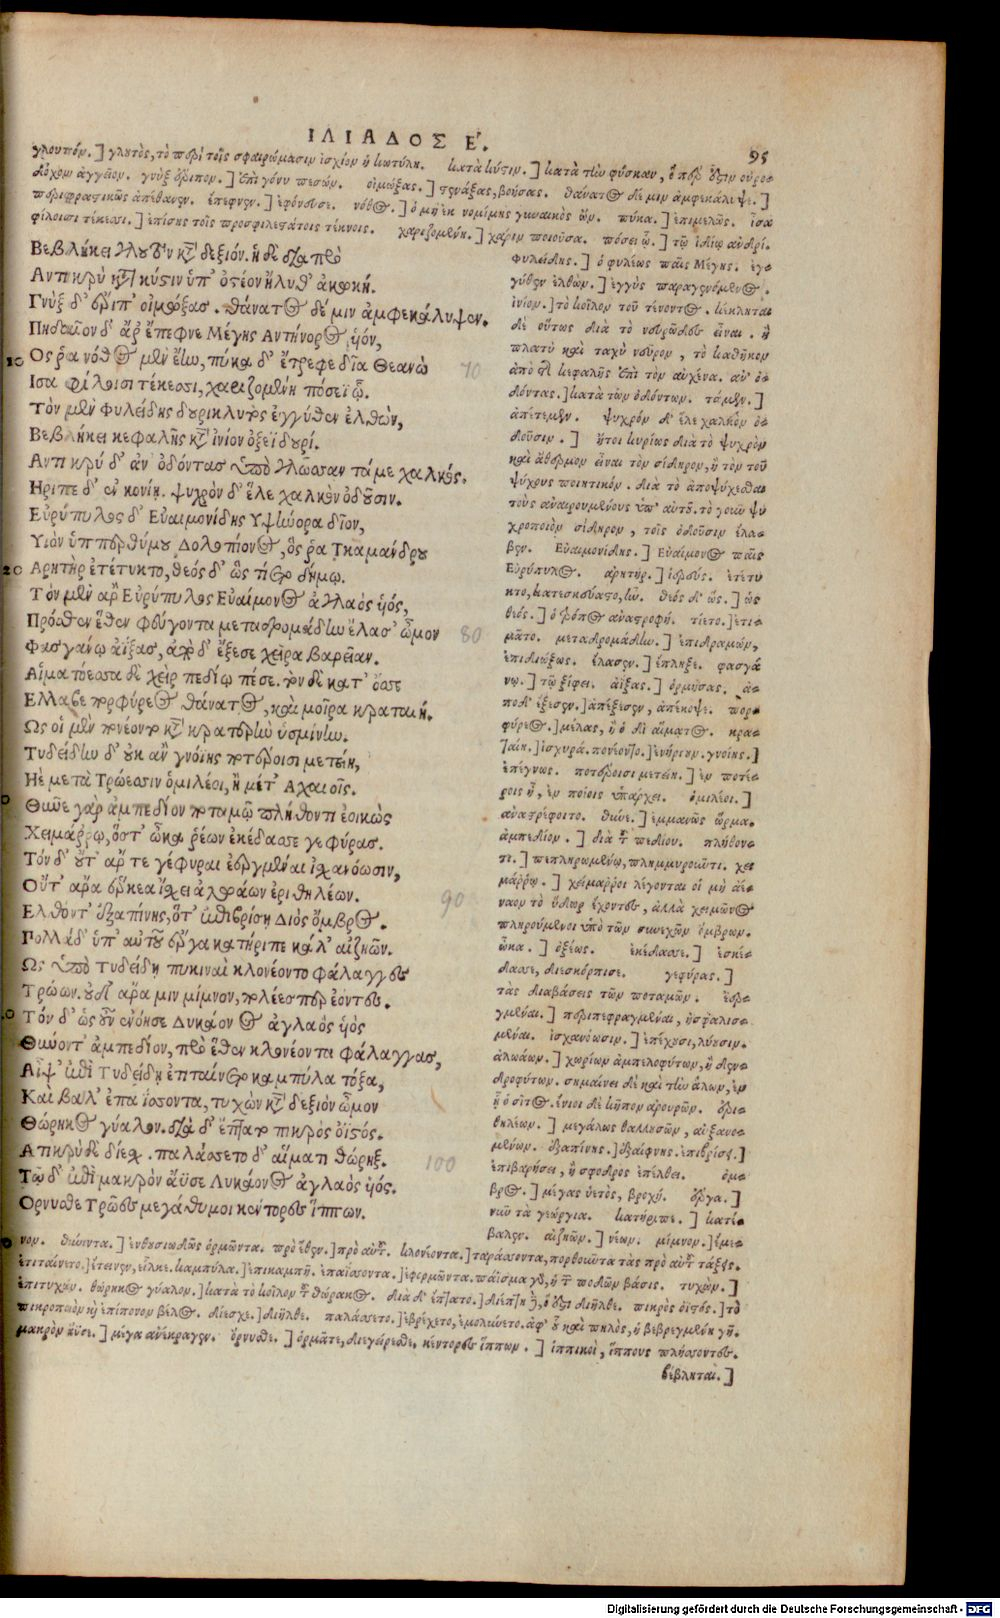 ΙΛΙΑΔΟΣ Ε.
95
γλουτόν.] γλυτὸς, τὸ περὶ τοῖς σφαιρώμασιν ἰσχίον ἢ κωτύλη. κατὰ κύστιν.] κατὰ τὴν φύσκαν, ὅ περ ἐστὶν οὐρο-
δόχον ἀγγεῖον. γνὺξ ἔριπον.] ἐπὶ γόνυ πεσών. οἰμώξας.] στενάξας, βοήσας. θάνατος δέ μιν ἀμφεκάλυψε.]
περιφραστικῶς ἀπέθανεν. ἔπεφνεν.] ἐφόνευσε. νόθος.] ὁ μὴ ἐκ νομίμης γυναικὸς ὤν. πύκα.] ἐπιμελῶς. ἶσα
φίλοισι τέκεσσι.] ἐπίσης τοῖς προσφιλεστάτοις τέκνοις. χαριζομένη.] χάριν ποιοῦσα. πόσεϊ ᾧ.] τῷ ἰδίῳ ἀνδρί.
Βεβλήκει γλουτὸν κατὰ δεξιόν. ἡ δὲ διὰ πρὸ
Αντικρὺ κατὰ κύστιν ὑπ' ὀστέον ἤλυθ' ἀκωκή.
Γνὺξ δ' ἔριπ' οἰμώξας. θάνατος δέ μιν ἀμφεκάλυψεν.
Πήδαιον δ' ἄρ ἔπεφνε Μέγης Αντήνορος υἱόν,
10 Ος ῥα νόθος μὲν ἔην, πύκα δ' ἔτρεφε δῖα Θεανὼ 70
Ισα φίλοισι τέκεσσι, χαριζομένη πόσεϊ ᾧ.
Τὸν μὲν Φυλείδης δουρικλυτὸς ἐγγύθεν ἐλθὼν,
Βεβλήκει κεφαλῆς κατὰ ἰνίον ὀξέϊ δουρί.
Αντικρύ δ' ἀν' ὀδόντας ὑπὸ γλῶσσαν τάμε χαλκός.
Ηριπε δ' ἐν κονίῃ. ψυχρὸν δ' ἕλε χαλκὸν ὀδοῦσιν.
Εὐρύπυλος δ' Εὐαιμονίδης Υψήνορα δῖον,
Υἱὸν ὑπερθύμου Δολοπίονος, ὅς ῥα Σκαμάνδρου
20 Αρητὴρ ἐτέτυκτο, θεὸς δ' ὣς τίετο δήμῳ.
Τὸν μὲν ἄρ Εὐρύπυλος Εὐαίμονος ἀγλαὸς υἱός,
Πρόσθεν ἕθεν φεύγοντα μεταδρομάδην ἔλασ' ὦμον 80
Φασγάνῳ ἀΐξας, ἀπὸ δ' ἔξεσε χεῖρα βαρεῖαν.
Αἱματόεσσα δὲ χεὶρ πεδίῳ πέσε. τὸν δὲ κατ' ὄσσε
Ελλαβε πορφύρεος θάνατος, καὶ μοῖρα κραταιή.
Ως οἱ μὲν πονέοντο κατὰ κρατερὴν ὑσμίνην.
Τυδείδην δ' οὐκ ἂν γνοίης ποτέροισι μετείη,
Ηὲ μετὰ Τρώεσσιν ὁμιλέοι, ἢ μέτ' Αχαιοῖς.
0 Θῦνε γὰρ ἀμπεδίον ποταμῷ πλήθοντι ἐοικὼς
Χειμάρρῳ, ὅστ' ὦκα ῥέων ἐκέδασσε γεφύρας.
Τόν δ' οὔτ' ἄρ τε γέφυραι ἐεργμέναι ἰσχανόωσιν,
Οὔτ' ἄρα ἕρκεα ἴσχει ἀλωάων ἐριθηλέων. 90
Ελθόντ' ἐξαπίνης, ὅτ' ἐπιβρίσῃ Διὸς ὄμβρος.
Πολλὰ δ' ὑπ' αὐτοῦ ἔργα κατήριπε κάλ' αἰζηῶν.
Ως ὑπὸ Τυδείδῃ πυκιναὶ κλονέοντο φάλαγγες
Τρώων. οὐδ' ἄρα μιν μίμνον, πολέες περ ἐόντες.
0 Τόν δ' ὡς οὖν ἐνόησε Λυκάονος ἀγλαὸς υἱὸς
Θύνοντ' ἀμπεδίον, πρὸ ἕθεν κλονέοντα φάλαγγας,
Αἶψ' ἐπὶ Τυδείδῃ ἐπιταίνετο καμπύλα τόξα,
Καὶ βάλ' ἐπαΐσσοντα, τυχὼν κατὰ δεξιὸν ὦμον
Θώρηκος γύαλον. διὰ δ' ἔπτατο πικρὸς ὀϊστός.
Αντικρὺ δὲ δίεσχε. παλάσσετο δ' αἵματι θώρηξ. 100
Τῷ δ' ἐπὶ μακρὸν ἄϋσε Λυκάονος ἀγλαὸς υἱός.
Ορνυσθε Τρῶες μεγάθυμοι κέντορες ἵππων.
φυλείδης.] ὁ φυλέως παῖς Μέγης. ἐγ-
γύθεν ἐλθών.] ἐγγὺς παραγενόμενος.
ἰνίον.] τὸ κοῖλον τοῦ τένοντος. κέκληται
δὲ οὕτως διὰ τὸ νευρῶδες εἶναι. ἢ
πλατὺ καὶ ταχὺ νεῦρον, τὸ καθῆκον
ἀπὸ τῆς κεφαλῆς ἐπὶ τὸν αὐχένα. ἀν' ὀ-
δόντας.] κατὰ τῶν ὀδόντων. τάμεν.]
ἀπέτεμεν. ψυχρὸν δ' ἕλε χαλκὸν ὀ-
δοῦσιν.] ἤτοι κυρίως διὰ τὸ ψυχρὸν
καὶ ἄθερμον εἶναι τὸν σίδηρον, ἢ τὸν τοῦ
ψύχους ποιητικόν. διὰ τὸ ἀποψύχεσθαι
τοὺς ἀναιρουμένους ὑπ' αὐτοῦ. τὸ γοῦν ψυ
χροποιὸν σίδηρον, τοῖς ὀδοῦσιν ἔλα-
βεν. Εὐαιμονίδης.] Εὐαίμονος παῖς
Εὐρύπυλος. ἀρητήρ.] ἱερεύς. ἐτέτυ
κτο, κατεσκεύαστο, ἦν. θεὸς δ' ὥς.] ὡς
θεός.] ὁ τρόπος ἀναστροφή. τίετο.] ἐτι-
μᾶτο. μεταδρομάδην.] ἐπιδραμὼν,
ἐπιδιώξας. ἔλασεν.] ἔπληξε. φασγά
νῳ.] τῷ ξίφει. ἀΐξας.] ὁρμήσας. ἀ-
πὸ δ' ἔξεσεν.] ἀπέξεσεν, ἀπέκοψε. πορ-
φύρεος.] μέλας, ἢ ὁ δι' αἵματος. κρα-
ταιή.] ἰσχυρά. πονέοντο.] ἐνήργουν. γνοίης.]
ἐπέγνως. ποτέροισι μετείη.] ἐν ποτέ-
ροις ᾖ, ἐν ποίοις ὑπάρχει. ὁμιλέοι.]
ἀναστρέφοιτο. θῦνε.] ἐμμανῶς ὥρμα.
ἀμπεδίον.] διὰ τοῦ πεδίου. πλήθον-
τι.] πεπληρωμένῳ, πλημμυροῦντι. χει
μάρρῳ.] χείμαρροι λέγονται οἱ μὴ ἀέ-
ναον τὸ ὕδωρ ἔχοντες, ἀλλὰ χειμῶνος
πληρούμενοι ὑπὸ τῶν συνεχῶν ὄμβρων.
ὦκα.] ὀξέως. ἐκέδασσε.] ἐσκέ-
δασε, διεσκόρπισε. γεφύρας.]
τὰς διαβάσεις τῶν ποταμῶν. ἐερ-
γμέναι.] περιπεφραγμέναι, ἠσφαλισ-
μέναι. ἰσχανόωσιν.] ἐπέχουσι, κωλύουσιν.
ἀλωάων.] χωρίων ἀμπελοφύτων, ἢ δεν-
δροφύτων. σημαίνει δὲ καὶ τὴν ἅλων, ἐν
ᾗ ὁ σῖτος. ἔνιοι δὲ κῆπον ἀρουρῶν. ἐρι-
θηλέων.] μεγάλως θαλλουσῶν, αὐξανο-
μένων. ἐξαπίνης.] ἐξαίφνης. ἐπιβρίσῃ.]
ἐπιβαρήσει, ἢ σφοδρὸς ἐπέλθει. ὄμ-
βρος.] μέγας ὑετὸς, βροχή. ἔργα.]
νῦν τὰ γεώργια. κατήριπε.] κατέ-
βαλεν. αἰζηῶν.] νέων. μίμνον.] ἔμε-
νον. θύνοντα.] ἐνθουσιωδῶς ὁρμῶντα. πρὸ ἕθεν.] πρὸ αὐτοῦ. κλονέοντα.] ταράσσοντα, πορθοῦντα τὰς πρὸ αὐτοῦ τάξεις.
ἐπιταίνετο.] ἔτεινεν, εἷλκε. καμπύλα.] ἐπικαμπῆ. ἐπαΐσσοντα.] ἐφορμῶντα.
ἐπιτυχών. θώρηκος γύαλον.] κατὰ τὸ κοῖλον τοῦ θώρακος. διὰ δ' ἔπτατο.]
πικροποιὸν καὶ ἐπίπονον βέλος. δίεσχε.] διῆλθε. παλάσσετο.] ἐβρέχετο, ἐμολύνετο. ἀφ' οὗ καὶ πηλὸς, ἡ βεβρεγμένη γῆ.
μακρὸν ἤϋσε.] μέγα ἀνέκραγεν. ὄρνυσθε.] ὁρμᾶτε, διεγείρεσθε. κέντορες ἵππων.] ἱππικοὶ, ἵππους πλήσσοντες.
βέβληται.]
Digitalisierung gefördert durch die Deutsche Forschungsgemeinschaft - DFG